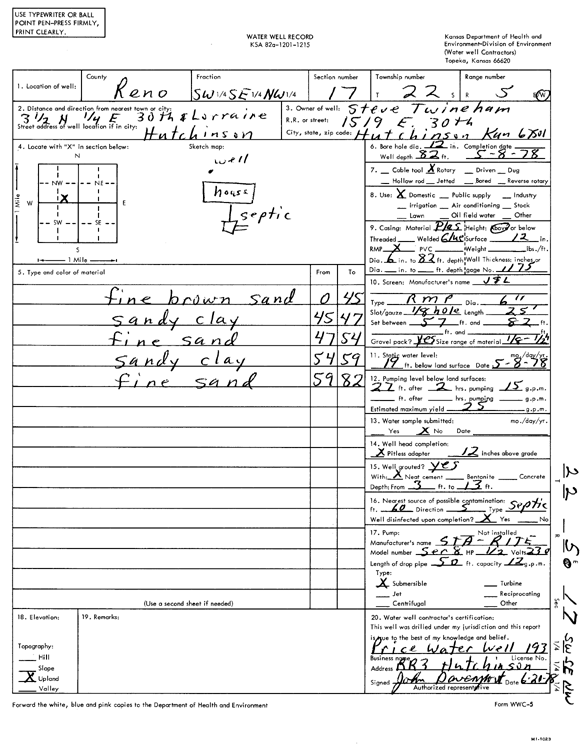 USE TYPEWRITER OR BALL
POINT PEN-PRESS FIRMLY,
PRINT CLEARLY.
WATER WELL RECORD
KSA 82a-1201-1215
Kansas Department of Health and
Environment-Division of Environment
(Water well Contractors)
Topeka, Kansas 66620
1. Location of well:
County Reno
Fraction SW 1/4 SE 1/4 NW 1/4
Section number 17
Township number T 22 S
Range number R 5 E/W
2. Distance and direction from nearest town or city: 3 1/2 N 1/4 E 30th & Lorraine
Street address of well location if in city: Hutchinson
3. Owner of well: Steve Twineham
R.R. or street: 1519 E. 30th
City, state, zip code: Hutchinson Kan 67501
4. Locate with "X" in section below:
N
NW NE
W X E
SW SE
S
1 Mile
1 Mile
Sketch map:
well
house
septic
6. Bore hole dia. 12 in. Completion date
Well depth 82 ft. 5-8-78
7. Cable tool X Rotary Driven Dug
Hollow rod Jetted Bored Reverse rotary
8. Use: X Domestic Public supply Industry
Irrigation Air conditioning Stock
Lawn Oil field water Other
9. Casing: Material Plas Height: Above or below
Threaded Welded Glue Surface 12 in.
RMP X PVC Weight lbs./ft.
Dia. 6 in. to 82 ft. depth Wall Thickness: inches or
Dia. in. to ft. depth gage No. 1175
5. Type and color of material From To
fine brown sand 0 45
sandy clay 45 47
fine sand 47 54
sandy clay 54 59
fine sand 59 82
(Use a second sheet if needed)
10. Screen: Manufacturer's name J&L
Type RMP Dia. 6"
Slot/gauze 1/8 hole Length 25'
Set between 57 ft. and 82 ft.
ft. and ft.
Gravel pack? yes Size range of material 1/8-1/4
11. Static water level: mo./day/yr.
19 ft. below land surface Date 5-8-78
12. Pumping level below land surfaces:
27 ft. after 2 hrs. pumping 15 g.p.m.
ft. after hrs. pumping g.p.m.
Estimated maximum yield 25 g.p.m.
13. Water sample submitted: mo./day/yr.
Yes X No Date
14. Well head completion:
X Pitless adapter 12 Inches above grade
15. Well grouted? yes
With: X Neat cement Bentonite Concrete
Depth: From 3 ft. to 13 ft.
16. Nearest source of possible contamination:
ft. 60 Direction S Type Septic
Well disinfected upon completion? X Yes No
17. Pump: Not installed
Manufacturer's name STA-RITE
Model number Ser 8 HP 1/2 Volts 230
Length of drop pipe 50 ft. capacity 12 g.p.m.
Type:
X Submersible Turbine
Jet Reciprocating
Centrifugal Other
18. Elevation:
Topography:
Hill
Slope
X Upland
Valley
19. Remarks:
20. Water well contractor's certification:
This well was drilled under my jurisdiction and this report
is true to the best of my knowledge and belief.
Price Water Well 193
Business name License No.
Address RR3 Hutchinson
Signed John Davenport Date 6-21-78
Authorized representative
Forward the white, blue and pink copies to the Department of Health and Environment
Form WWC-5
T 22 - R 5 E W Sec 17 SW SE NW
1/4 1/4 1/4